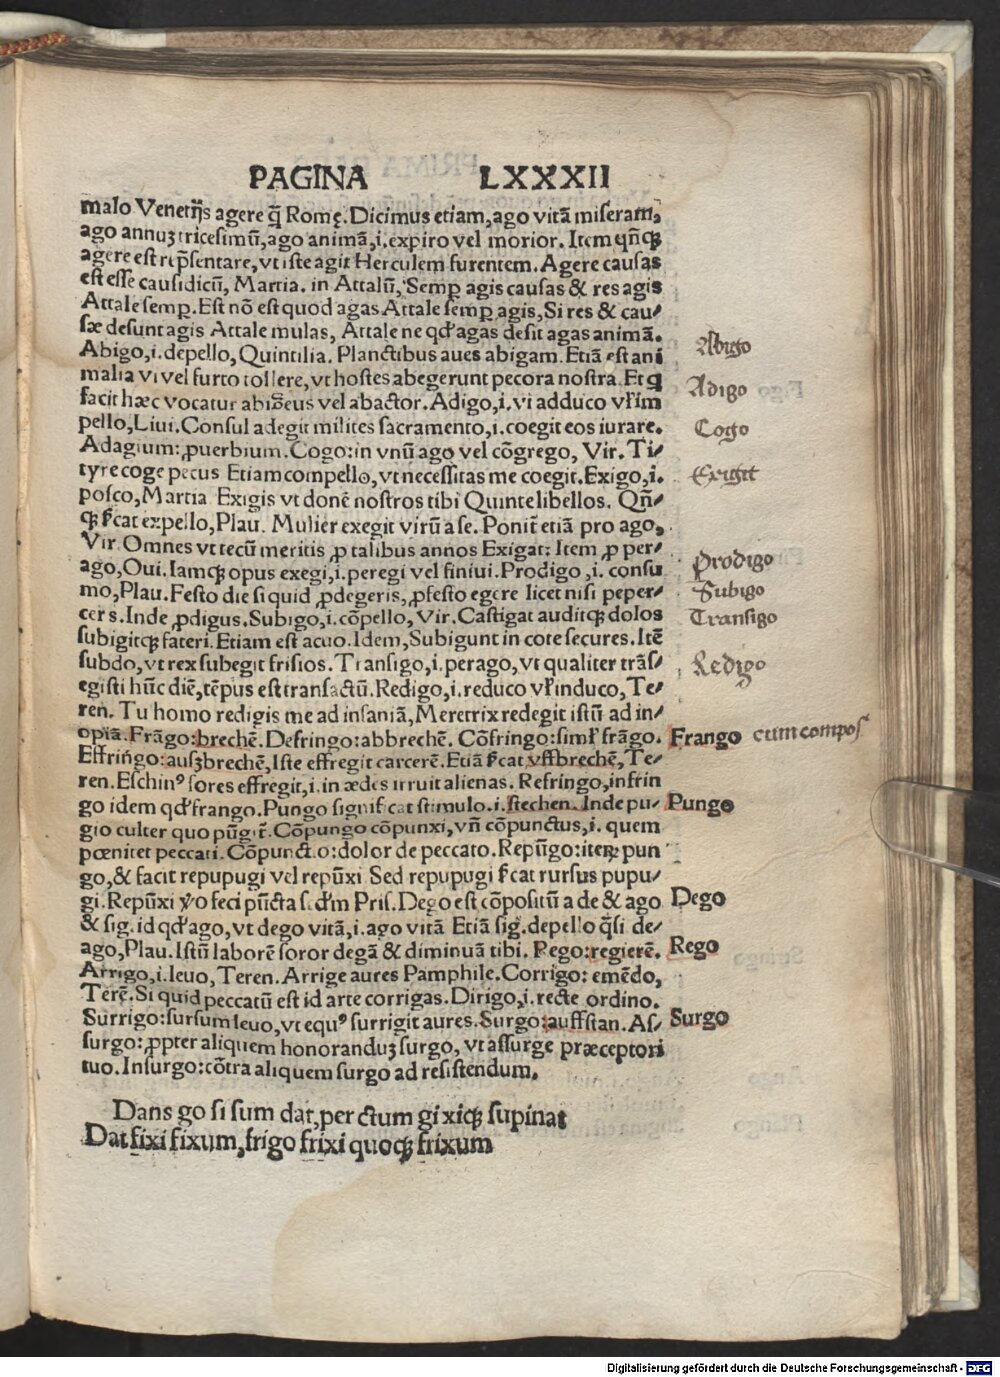 PAGINA LXXXII
malo Venetijs agere q̃ Romę. Dicimus etiam, ago vitā miseram,
ago annuꝫ tricesimū, ago animā, i. expiro vel morior. Item qñcꝗ
agere est rep̃sentare, vt iste agit Herculem furentem. Agere causas
est esse causidicū, Martia. in Attalū, Semꝑ agis causas & res agis
Attale semꝑ. Est nō est quod agas Attale semꝑ agis, Si res & cau⸗
sæ desunt agis Attale mulas, Attale ne qd' agas desit agas animā.
Abigo, i. depello, Quintilia. Planctibus aues abigam. Etiā est ani Abigo
malia vi vel furto tollere, vt hostes abegerunt pecora nostra. Et q
facit hæc vocatur abigeus vel abactor. Adigo, i. vi adduco vl' im Adigo
pello, Liui. Consul adegit milites sacramento, i. coegit eos iurare. Cogo
Adagium: ꝓuerbium. Cogo: in vnū ago vel cōgrego, Vir. Ti⸗
tyre coge pecus Etiam compello, vt necessitas me coegit. Exigo, i. Exigit
posco, Martia Exigis vt donē nostros tibi Quinte libellos. Qñ⸗
cꝗ sig̃ficat expello, Plau. Mulier exegit virū a se. Ponit̃ etiā pro ago,
Vir. Omnes vt tecū meritis ꝓ talibus annos Exigat: Item ꝓ per⸗
ago, Oui. Iamcꝗ opus exegi, i. peregi vel finiui. Prodigo, i. consu Prodigo
mo, Plau. Festo die si quid ꝓdegeris, ꝓfesto egere licet nisi peper⸗ Subigo
ceris. Inde ꝓdigus. Subigo, i. cōpello, Vir. Castigat auditcꝗ dolos Transigo
subigitcꝗ fateri. Etiam est acuo. Idem, Subigunt in cote secures. Itē
subdo, vt rex subegit frisios. Transigo, i. perago, vt qualiter trās⸗ Redigo
egisti hūc diē, tēpus est transactū. Redigo, i. reduco vl' induco, Te⸗
ren. Tu homo redigis me ad insaniā, Meretrix redegit istū ad in⸗
opiā. Frāgo: brechē. Defringo: abbrechē. Cōfringo: siml' frāgo. Frango cum compos
Effringo: außbrechē, Iste effregit carcerē. Etiā sig̃ficat vffbrechē, Te⸗
ren. Eschinꝰ fores effregit, i. in ædes irruit alienas. Refringo, infrin
go idem qd' frango. Pungo significat stimulo. i. stechen. Inde pu⸗ Pungo
gio culter quo pūgit̃. Cōpungo cōpunxi, vñ cōpunctus, i. quem
pœnitet peccati. Cōpunctio: dolor de peccato. Repūgo: iteꝝ pun
go, & facit repupugi vel repūxi Sed repupugi sig̃ficat rursus pupu⸗
gi. Repūxi ṽo feci pūcta s̃cd'm Pris. Dego est cōpositū a de & ago Dego
& sig. id qd' ago, vt dego vitā, i. ago vitā Etiā sig. depello q̃si de⸗
ago, Plau. Istū laborē soror degā & diminuā tibi. Rego: regierē. Rego
Arrigo, i. leuo, Teren. Arrige aures Pamphile. Corrigo: emēdo,
Terē. Si quid peccatū est id arte corrigas. Dirigo, i. recte ordino.
Surrigo: sursum leuo, vt equꝰ surrigit aures. Surgo: auffstan. As⸗ Surgo
surgo: ꝓpter aliquem honoranduꝫ surgo, vt assurge præceptori
tuo. Insurgo: cōtra aliquem surgo ad resistendum.
Dans go si sum dat, per ctum gi xicꝗ supinat
Dat fixi fixum, frigo frixi quocꝗ frixum
Digitalisierung gefördert durch die Deutsche Forschungsgemeinschaft - DFG